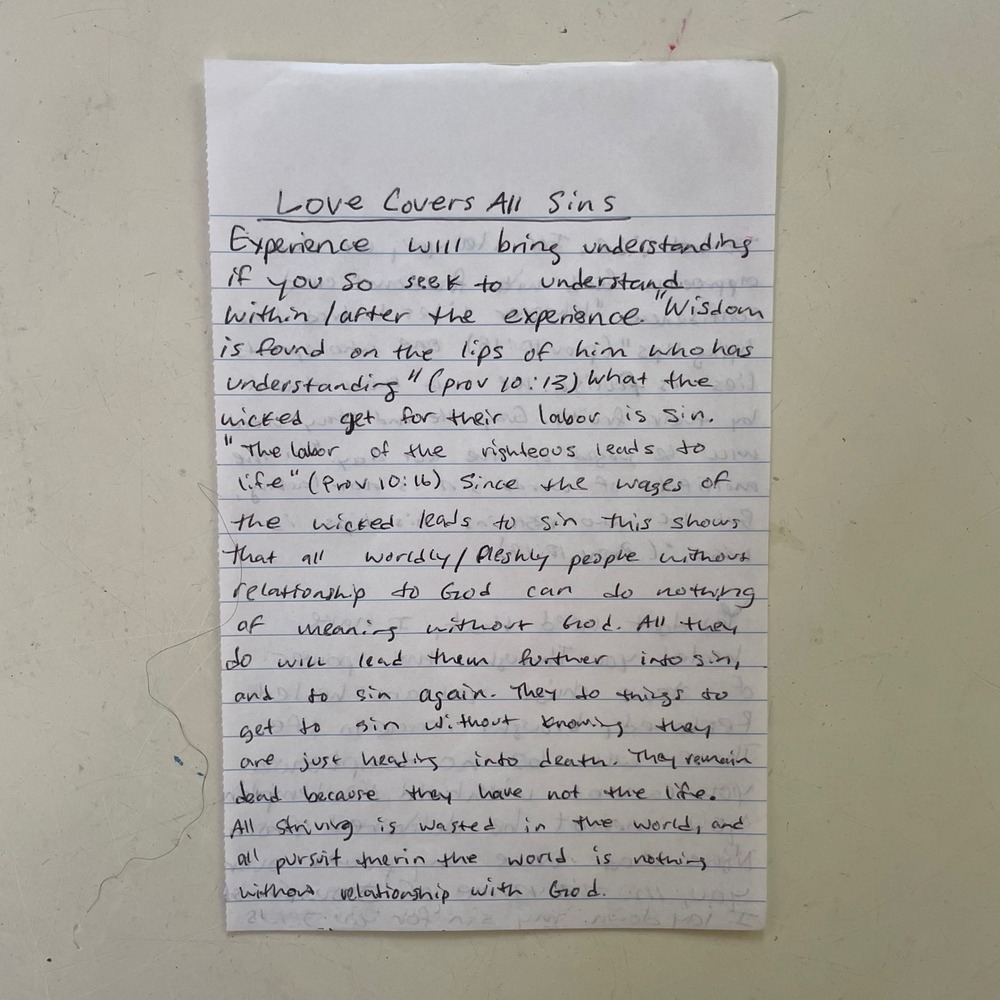 Love Covers All Sins
Experience will bring understanding
if you so seek to understand
within/after the experience. "Wisdom
is found on the lips of him who has
understanding" (prov 10:13) What the
wicked get for their labor is sin.
"The labor of the righteous leads to
life" (Prov 10:16) Since the wages of
the wicked leads to sin this shows
that all worldly/fleshly people without
relationship to God can do nothing
of meaning without God. All they
do will lead them further into sin,
and to sin again. They do things to
get to sin without knowing they
are just heading into death. They remain
dead because they have not the life.
All striving is wasted in the world, and
all pursuit therin the world is nothing
without relationship with God.